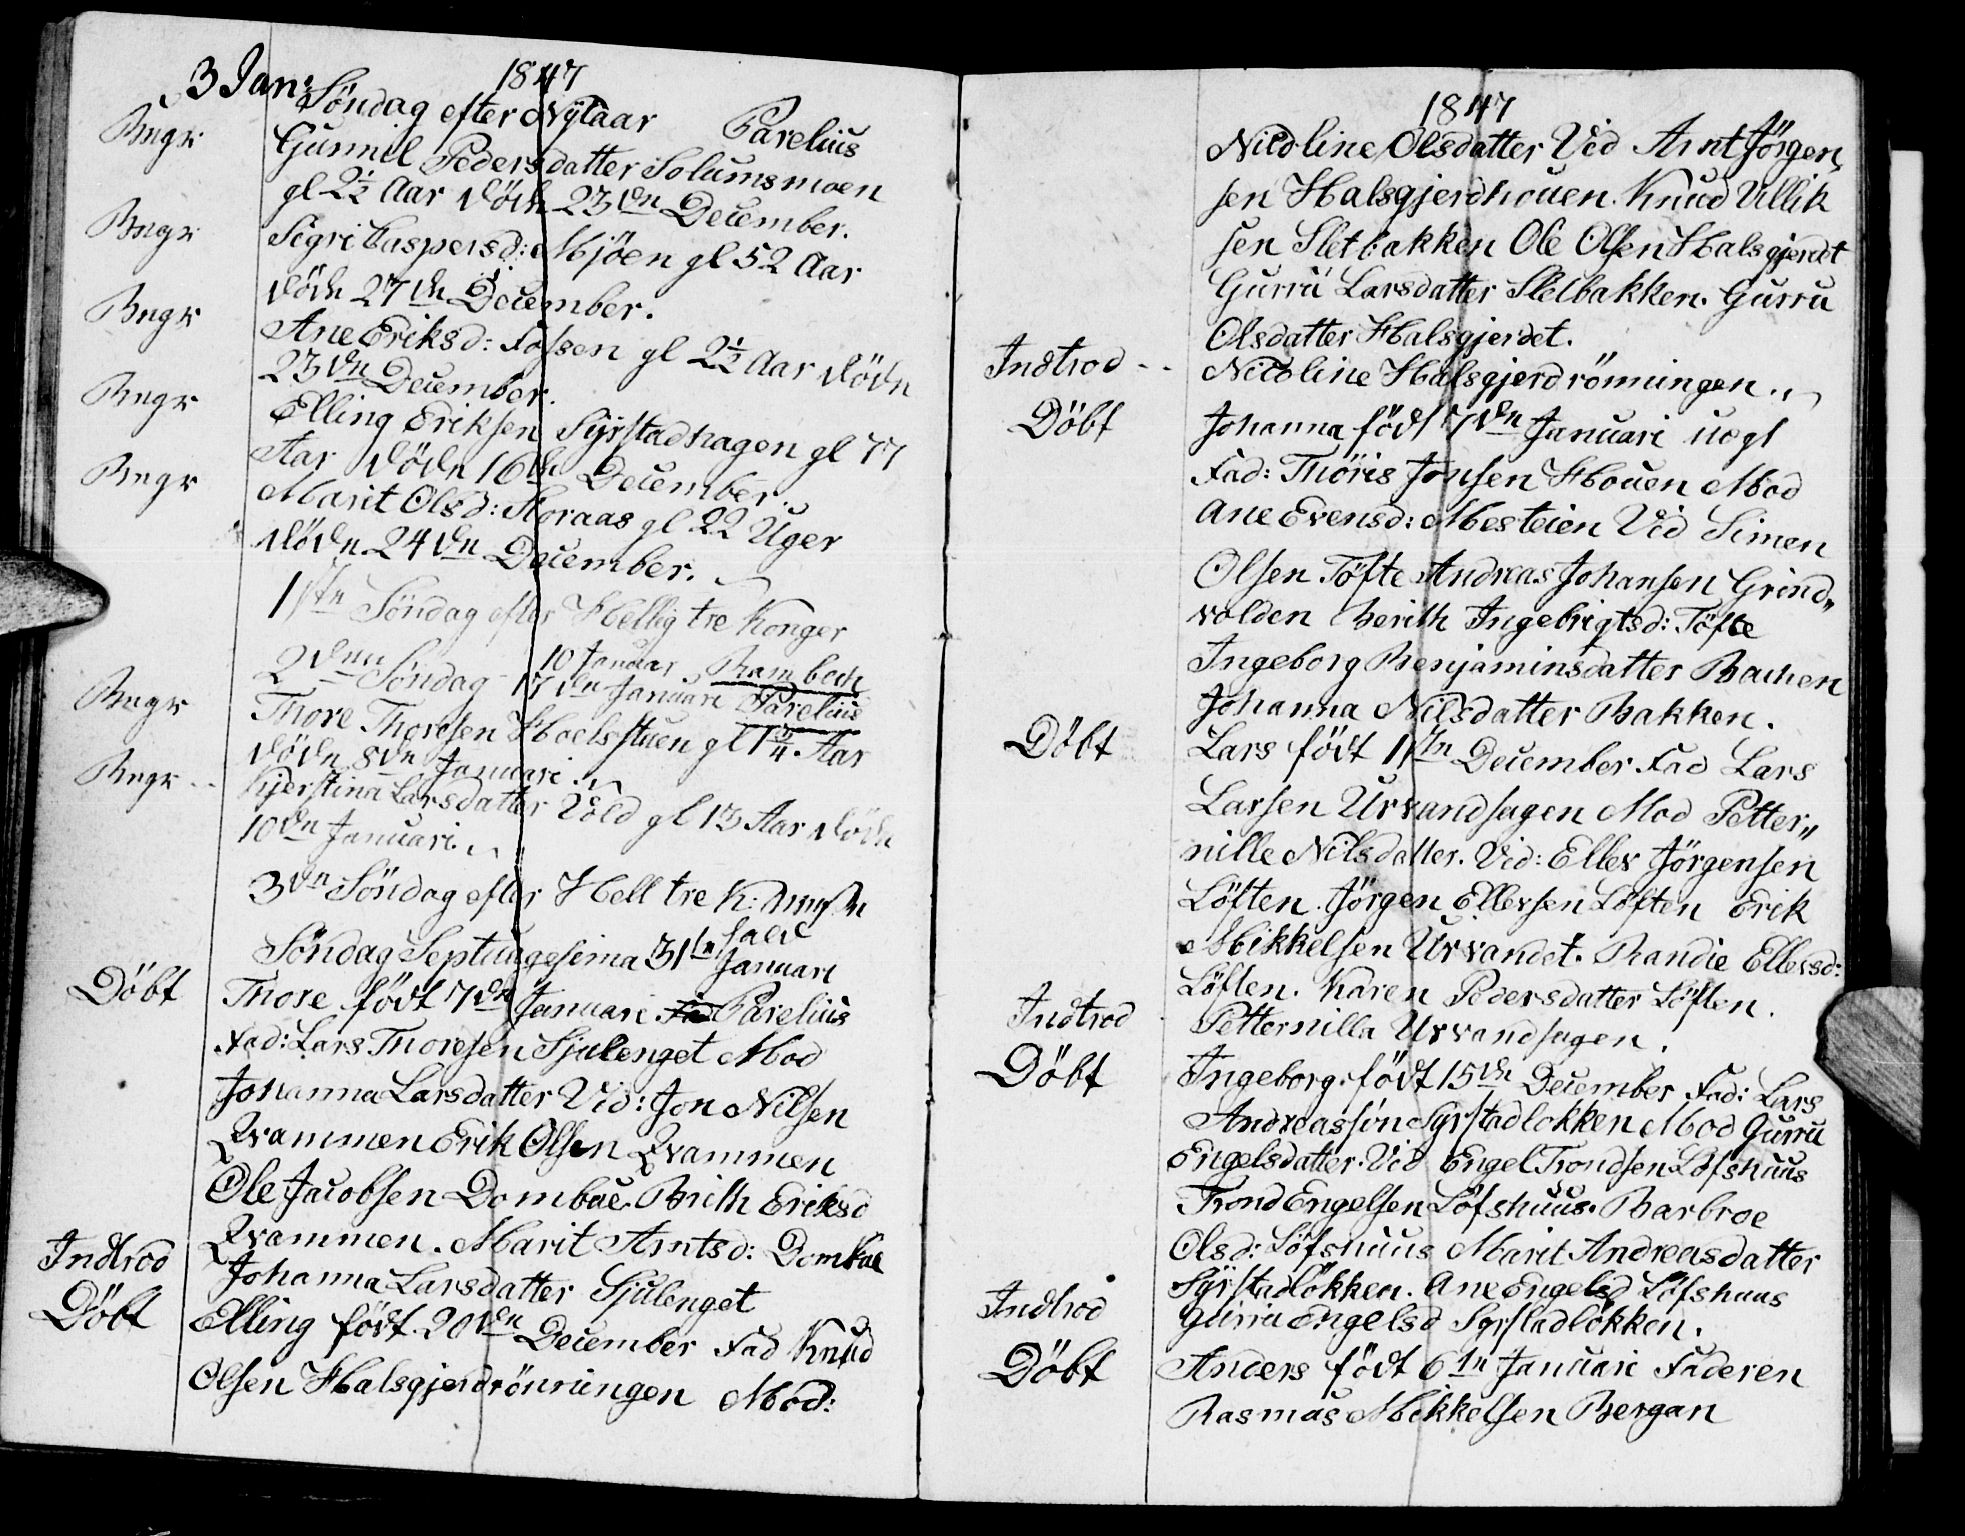 1847
3 Jan: Söndag efter Nytaar Parelius
Begr Gunnil Pedersdatter Solumsmoen
gl 2½ Aar död 23dn December.
Begr Sigri Caspersd: Mjöen gl 52 Aar
död 27dn December.
Begr Ane Eriksd: Fossen gl 2½ Aar död
23dn December.
Begr Elling Eriksen Syrstadhagen gl 77
Aar död 16dn December.
Begr Marit Olsd: Storaas gl 22 Uger
död 24dn December.
1stn Söndag efter Hellig tre Konger
10 Januar. Rambech
2den Söndag 17dn Januari Parelius
Begr Thore Thoresen Hoelsstuen gl 1¾ Aar
död 8dn Januari.
Begr Kjerstina Larsdatter Vold gl 13 Aar död
10dn Januari.
3dn Söndag efter Hell tre K:
Söndag Septuagesima 31tn Januari
Döbt Thore födt 7dn Januari Fad Parelius
Fad: Lars Thoresen Sjulenget Mod
Johanna Larsdatter Vid: Jon Nilsen
Qvammen Erik Olsen Qvammen
Ole Jacobsen Dombue. Brith Eriksd
Qvammen. Marit Arntsd: Dombue
Indtrod Johanna Larsdatter Sjulenget
Döbt Elling födt 20dn December Fad Knud
Olsen Halsgjerdrönningen Mod:
1847
Nicoline Olsdatter Vid Arnt Jörgen„
sen Halsgjerdhouen. Knud Ullik
sen Sletbakken Ole Olsen Halsgjerdet
Gurru Larsdatter Sletbakken. Gurru
Olsdatter Halsgjerdet.
Indtrod - - Nicoline Halsgjerdrönningen.
Döbt Johanna födt 7dn Januari uegt
Fad: Thöris Jonsen Houen Mod
Ane Evensd: Mesteien Vid Simen
Olsen Töfte Andreas Johansen Grind„
volden Berith Ingebrigtsd: Töfte
Ingeborg Benjaminsdatter Bachen
Johanna Nilsdatter Bakken.
Döbt Lars födt 11tn December Fad Lars
Larsen Urvandsagen Mod Petter„
nille Nilsdatter. Vid: Ellev Jörgensen
Löften. Jörgen Ellevsen Löften Erik
Mikkelsen Urvandet. Randie Ellevsd:
Löften. Karen Pedersdatter Löften.
Indtrod Petternilla Urvandsagen.
Döbt Ingeborg födt 15dn December Fad: Lars
Andreassön Syrstadlokken Mod Gurru
Engelsdatter. Vid Engel Trondsen Löfshuus
Trond Engelsen Löfshuus. Barbroe
Olsd: Löfshuus Marit Andreasdatter
Syrstadlökken. Ane Engelsd Löfshuus
Indtrod Gurru Engelsd Syrstadlökken.
Döbt Anders födt 6tn Januari Faderen
Rasmus Mikkelsen Bergan